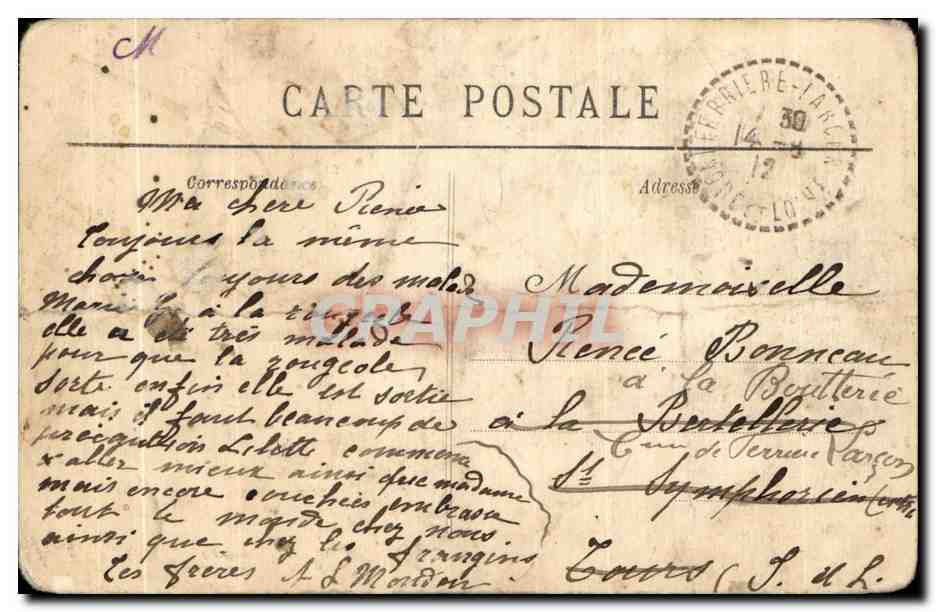 M
CARTE POSTALE
FERRIERE-LARÇON
30
14
12
INDRE ET LOIRE
Correspondance
Adresse
Ma chere Renée
toujours la même
chose toujours des malad
à la rougeole
elle a été très malade
pour que la rougeole
sorte enfin elle est sortie
mais il faut beaucoup de
precaution Lilette commence
x aller mieux ainsi que madame
mais encore couchées embrasse
tout le monde chez nous
ainsi que chez les frangins
tes frères
Mademoiselle
Renée Bonneau
à la Boutterie
à la Bertellerie
de Ferriere Larçon
St Symphorien
Tours (I. et L.
CARTE GRAPHIL